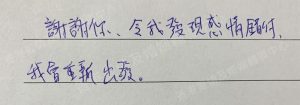 謝謝你、令我發現感情顧問，
我會重新出發。